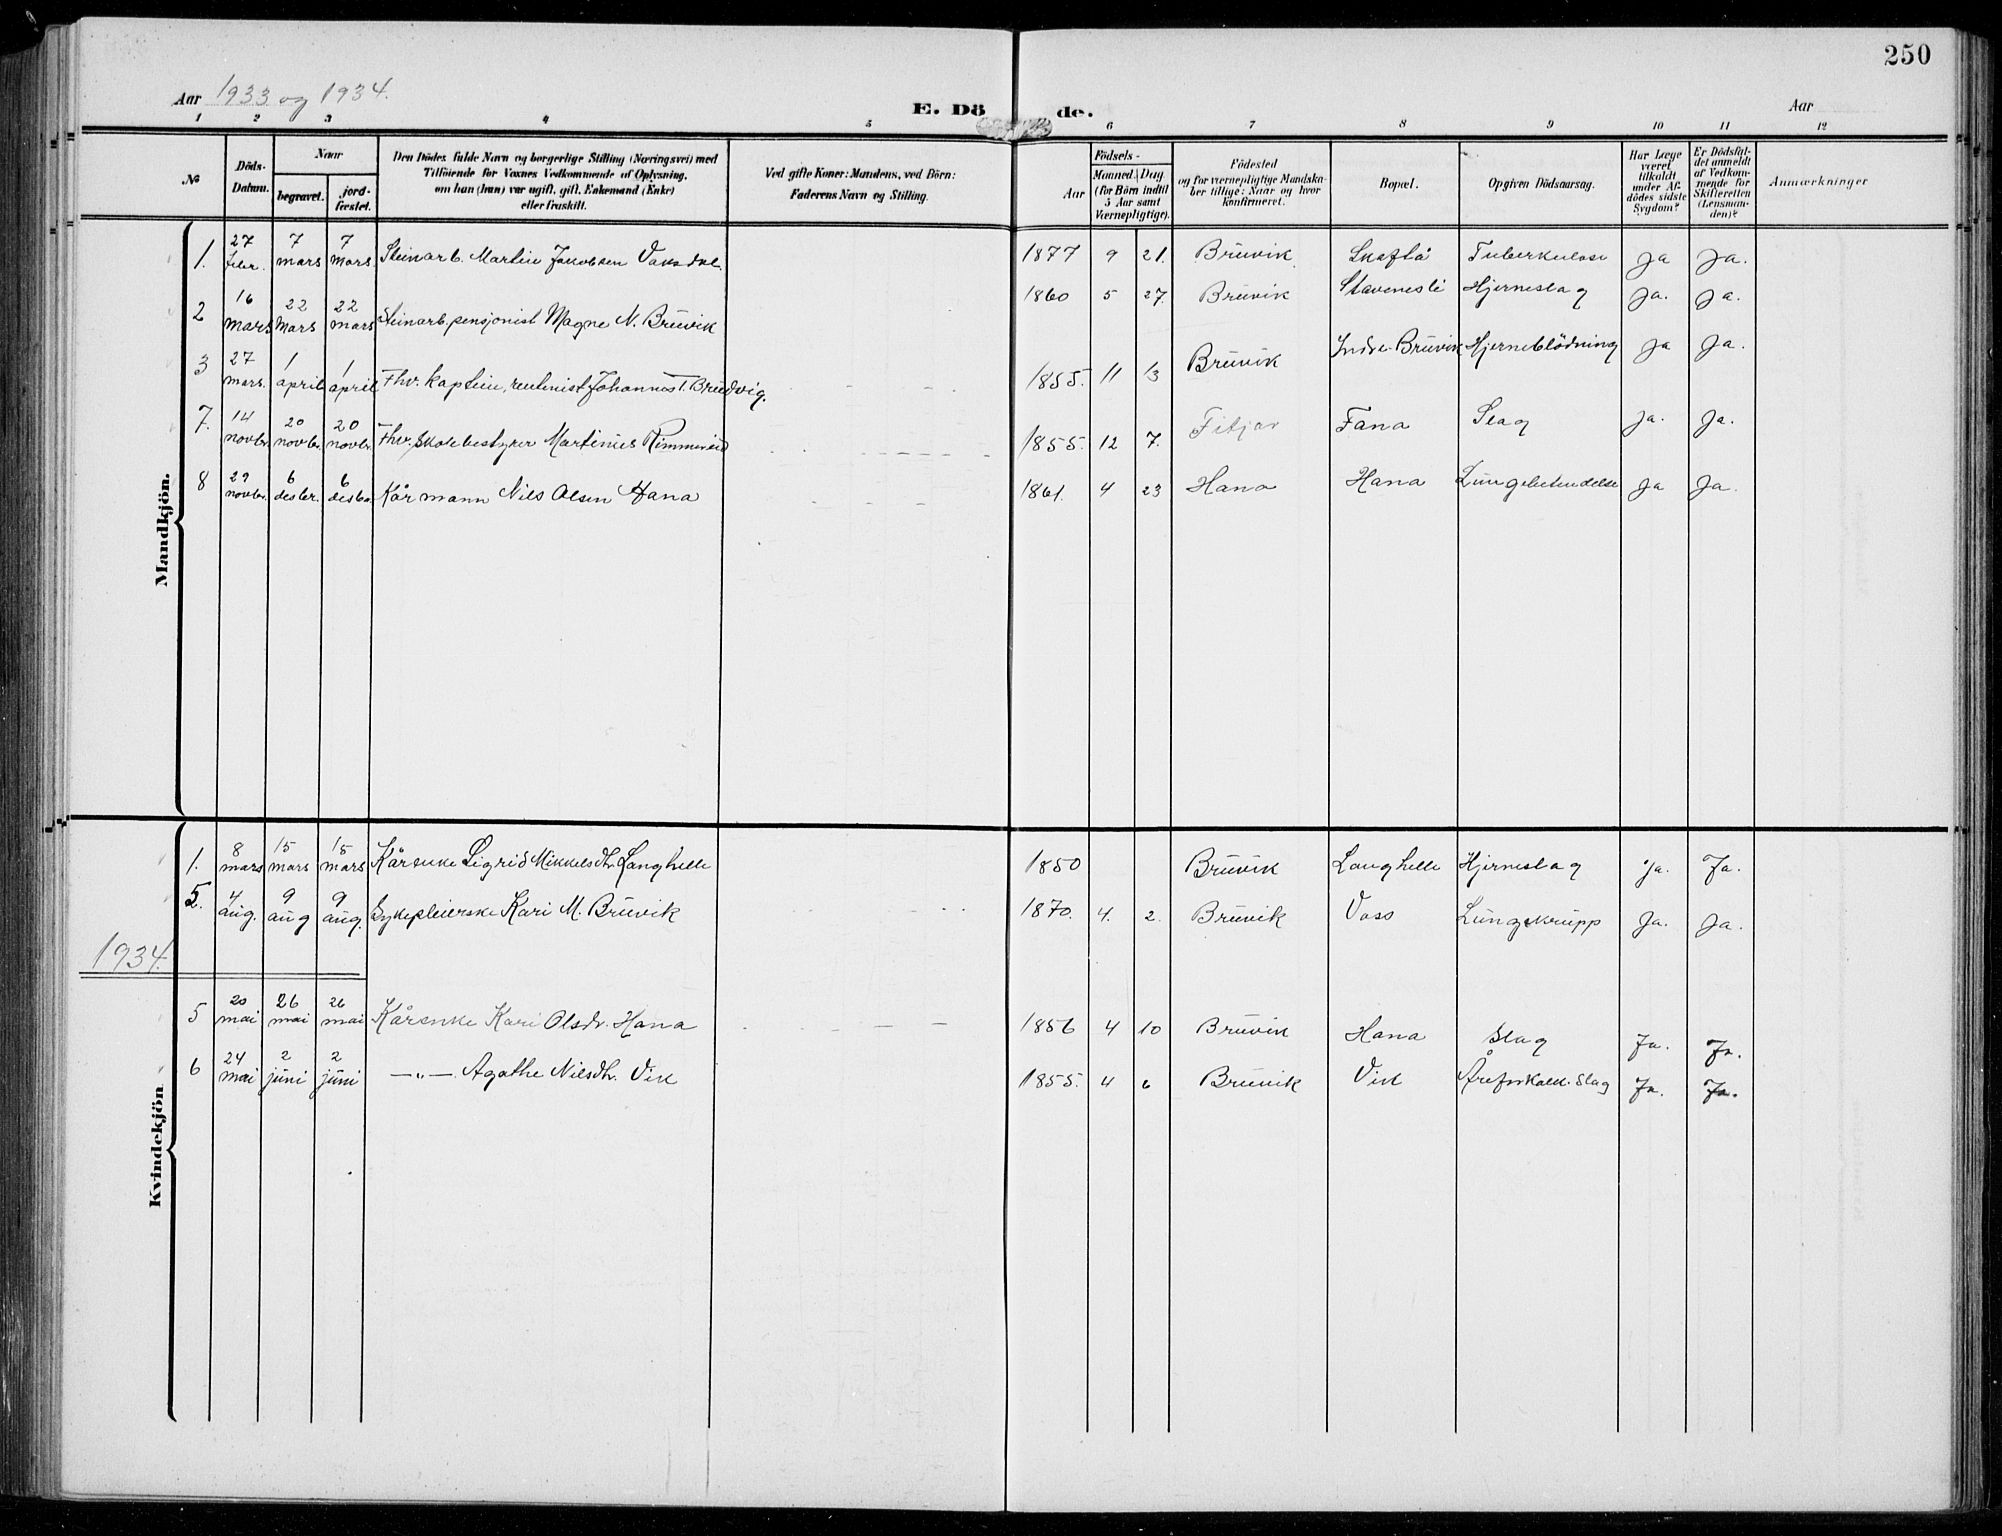 250
Aar 1933 og 1934.
E. Dö de.
Aar
1 2 3 4 5 6 7 8 9 10 11 12
No
Döds-Datum.
Naar
begravet.
jord-fæstet.
Den Dödes fulde Navn og borgerlige Stilling (Næringsvei) med
Tilföiende for Voxnes Vedkommende af Oplysning,
om han (hun) var ugift, gift, Enkemand (Enke)
eller fraskilt.
Ved gifte Koner: Mandens, ved Börn:
Faderens Navn og Stilling.
Födsels-
Aar
Maaned. Dag
(for Börn indtil
5 Aar samt
Værnepligtige).
Födested
og for værnepligtige Mandska-
ber tillige: Naar og hvor
konfirmeret.
Bopæl.
Opgiven Dödsaarsag.
Har Læge
været
tilkaldt
under Af-
dödes sidste
Sygdom?
Er Dödsfal-
det anmeldt
af Vedkom-
mende for
Skifteretten
(Lensman-
den)?
Anmærkninger
Mandkjön.
1. 27 febr. 7 mars 7 mars Steinarb. Martin Jakobsen Vaksdal. 1877 9 21. Bruvik Skaftå Tuberkulose Ja Ja.
2 16 mars 22 mars 22 mars Steinarb. pensjonist Magne N. Bruvik 1860 5 27. Bruvik Stavenesli Hjerneslag Ja. Ja.
3 27 mars. 1 april 1 april Fhv. kaptein, rentenist Johannes I. Brudvig. 1855. 11 13 Bruvik Indre-Bruvik Hjerneblödning Ja Ja.
7. 14 novbr. 20 novbr. 20 novbr. Fhv. skolebestyrer Martinus Rimmereid 1855. 12 7. Fitjar Fana Slag Ja. Ja.
8 29 novbr. 6 desbr. 6 desbr. Kårmann Nils Olsen Hana 1861. 4 23 Hana Hana Lungebetendelse Ja Ja.
Kvindekjön
1. 8 mars 15 mars 15 mars Kårenke Sigrid Mikkelsdtr. Langhelle 1850 Bruvik Langhelle Hjerneslag Ja. Ja.
5. 4 aug. 9 aug 9 aug. Sykepleierske Kari M. Bruvik 1870. 4. 2. Bruvik Voss Lungekrupp Ja. Ja.
1934.
5 20 mai 26 mai 26 mai Kårenke Kari Olsdr. Hana 1856 4 10 Bruvik Hana Slag Ja. Ja.
6 24 mai 2 juni 2 juni —„— Agathe Nilsdtr. Vik 1855. 4 6 Bruvik Vik Årefrkalk. Slag Ja. Ja.